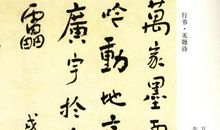 行书·无题诗
萬家墨面
吟動地
廣宇於
靁